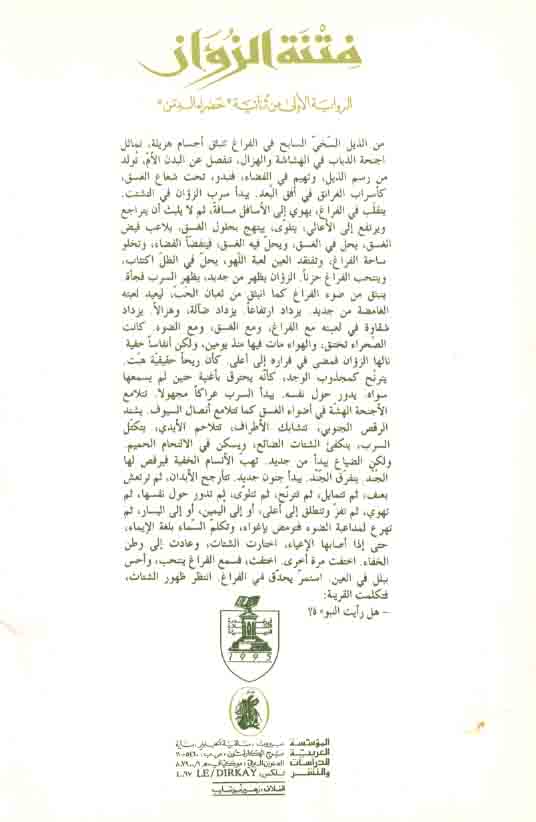 فتنة الزؤان
الرواية الأولى من ثنائية «خضراء الدمن»
من الذيل السخيّ السابح في الفراغ تنبثق أجسام هزيلة، تماثل
اجنحة الذباب في الهشاشة والهزال، تنفصل عن البدن الأمّ، تُولد
من رسم الذيل، وتهيم في الفضاء، فتبدو، تحت شعاع الغسق،
كأسراب الغرانق في أفق البُعد. يبدأ سرب الزؤان في التشتت.
يتقلّب في الفراغ، يهوي إلى الأسافل مسافةً، ثم لا يلبث أن يتراجع
ويرتفع إلى الأعالي، يتلوى، يبتهج بحلول الغسق، يلاعب فيض
الغسق، يحل في الغسق، ويحلّ فيه الغسق، فينفضّ الفضاء، وتخلو
ساحة الفراغ، وتفتقد العين لعبة اللّهو، يحلّ في الظلّ اكتئاب،
وينتحب الفراغ حزناً. الزؤان يظهر من جديد، يظهر السرب فجأة.
ينبثق من ضوء الفراغ كما انبثق من ثعبان الحبّ، ليعيد لعبته
الغامضة من جديد. يزداد ارتفاعاً. يزداد ضآلة، وهزالاً. يزداد
شقاوة في لعبته مع الفراغ، ومع الغسق، ومع الضوء. كانت
الصحراء تختنق، والهواء مات فيها منذ يومين، ولكن أنفاساً خفية
نالها الزؤان فمضى في فراره إلى أعلى. كأن ريحاً حقيقيّة هبّت.
يترنّح كمجذوب الوجد، كأنّه يحترق بأغنية حنين لم يسمعها
سواه. يدور حول نفسه. يبدأ السرب عراكاً مجهولاً. تتلامع
الأجنحة الهشّة في أضواء الغسق كما تتلامع أنصال السيوف. يشتد
الرقص الجنوبي، تتشابك الأطراف، تتلاحم الأيدي، يتكتّل
السرب، ينكفئ الشتات الضائع، ويسكن في الالتحام الحميم.
ولكن الضياع يبدأ من جديد. تهبّ الأنسام الخفية فيرقص لها
الجندُ. يتفرق الجُنْد. يبدأ جنون جديد. تتأرجح الأبدان، ثم ترتعش
بعنف، ثم تتمايل، ثم تترنّح، ثم تتلوّى، ثم تدور حول نفسها، ثم
تهوي، ثم تفرّ وتنطلق إلى أعلى، أو إلى اليمين، أو إلى اليسار، ثم
تهرع لمداعبة الضوء فتومض بإغواء، وتكلم السّماء بلغة الإيماء،
حتى إذا أصابها الإعياء، اختارت الشتات، وعادت إلى وطن
الخفاء. اختفت مرة أخرى. اختفت، فسمع الفراغ ينتحب، وأحس
ببلل في العين. استمرّ يحدّق في الفراغ. انتظر ظهور الشتات،
فتكلمت القرينة:
- هل رأيت النبوءة؟
1995
المؤسسة
العربية
للدراسات
والنشر
تلكس: LE/DIRKAY